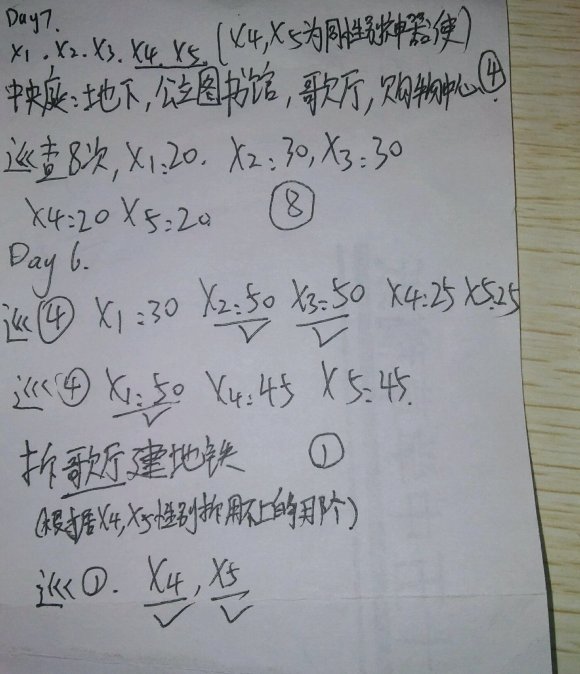 Day7.
X1. X2. X3. X4. X5. (X4,X5为同性别神器使)
中央庭:地下,公立图书馆,歌厅,购物中心④
巡查8次, X1:20. X2:30, X3:30
X4:20 X5:20 ⑧
Day 6.
巡④ X1:30 X2:50 X3:50 X4:25 X5:25
巡④ X1:50 X4:45 X5:45.
拆歌厅建地铁 ①
(根据X4,X5性别拆用不上的那个)
巡①. X4, X5